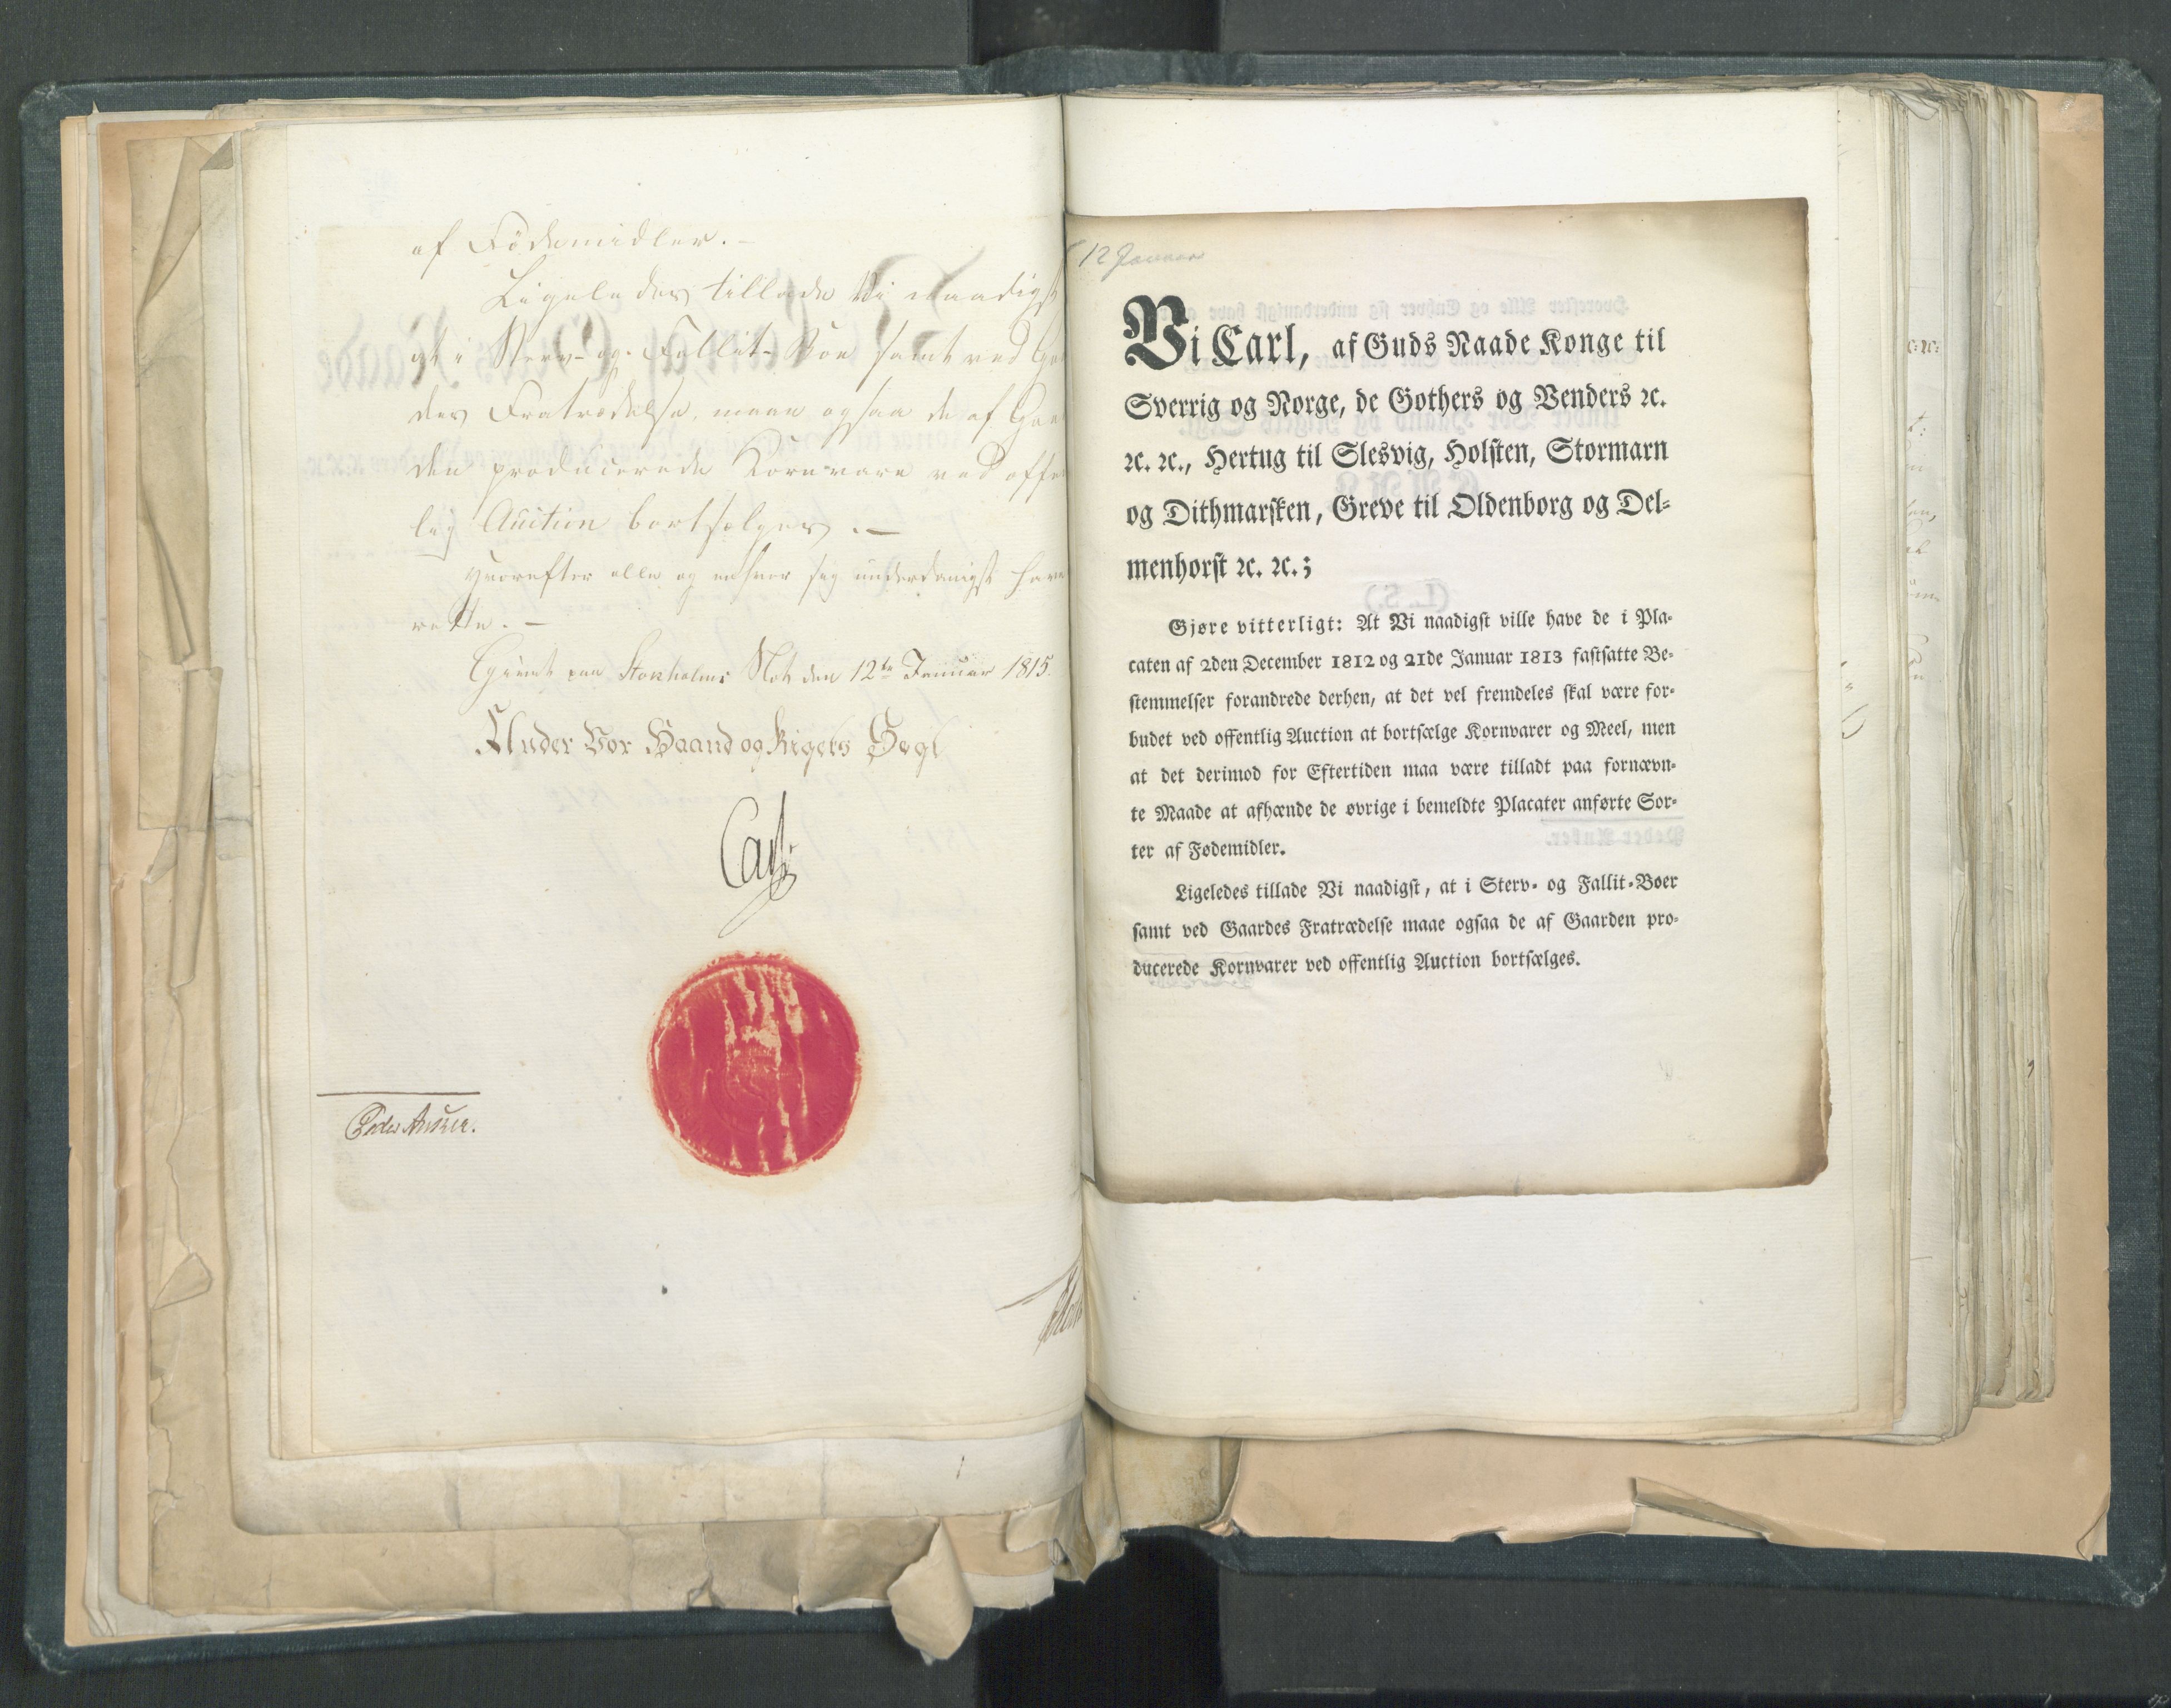 af Födemidler. –
Ligeledes tillade Vi naadigst
at i Sterv- og Fallit-Boe samt ved Gaar
des Fratrædelse, maae ogsaa de af Gaar
den producerede Kornvare ved offent
lig Auction bortsælges. –
Hvorefter alle og enhver sig underdanigst have
rette. –
Givet paa Stokholms Slot den 12te Januar 1815.
Under Vor Haand og Rigets Segl
Carl
Peder Anker.
12 Januar
Vi Carl, af Guds Naade Konge til
Sverrig og Norge, de Gothers og Venders ꝛc.
ꝛc. ꝛc., Hertug til Slesvig, Holsten, Stormarn
og Dithmarsken, Greve til Oldenborg og Del-
menhorst ꝛc. ꝛc.;
Gjøre vitterligt: At Vi naadigst ville have de i Pla-
caten af 2den December 1812 og 21de Januar 1813 fastsatte Be-
stemmelser forandrede derhen, at det vel fremdeles skal være for-
budet ved offentlig Auction at bortsælge Kornvarer og Meel, men
at det derimod for Eftertiden maa være tilladt paa fornævn-
te Maade at afhænde de øvrige i bemeldte Placater anførte Sor-
ter af Fødemidler.
Ligeledes tillade Vi naadigst, at i Sterv- og Fallit-Boer
samt ved Gaardes Fratrædelse maae ogsaa de af Gaarden pro-
ducerede Kornvarer ved offentlig Auction bortsælges.